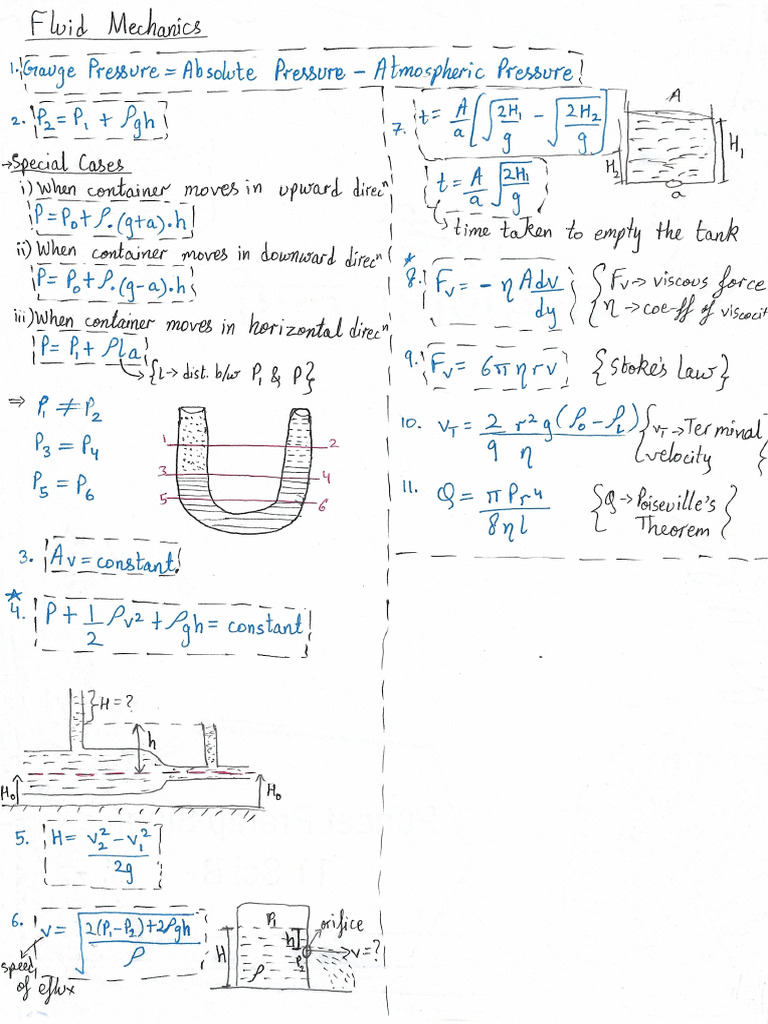 Fluid Mechanics
1. Gauge Pressure = Absolute Pressure - Atmospheric Pressure
2. P₂ = P₁ + ρgh
→ Special Cases
i) When container moves in upward direcⁿ
P = P₀ + ρ.(g+a).h
ii) When container moves in downward direcⁿ
P = P₀ + ρ.(g-a).h
iii) When container moves in horizontal direcⁿ
P = P₁ + ρla
{l → dist. b/w P₁ & P}
⇒ P₁ ≠ P₂
P₃ = P₄
P₅ = P₆
1 2
3 4
5 6
3. Av = constant
★
4. P + 1/2 ρv² + ρgh = constant
H = ?
h
H₀ H₀
5. H = (v₂² - v₁²)/2g
6. v = √((2(P₁-P₂)+2ρgh)/ρ)
speed
of eflux
P₁
orifice
h
H
P₂
v = ?
ρ
7. t = A/a [√(2H₁/g) - √(2H₂/g)]
A
H₁
H₂
a
t = A/a √(2H₁/g)
time taken to empty the tank
*
8. Fv = - η A dv/dy
{Fv → viscous force
η → coe-ff of viscocit
9. Fv = 6πηrv {Stoke's Law}
10. v_T = 2/9 r²g(ρ₀ - ρ_L)/η
{v_T → Terminal
velocity
11. Q = πPr⁴/8ηl
{Q → Poiseville's
Theorem}